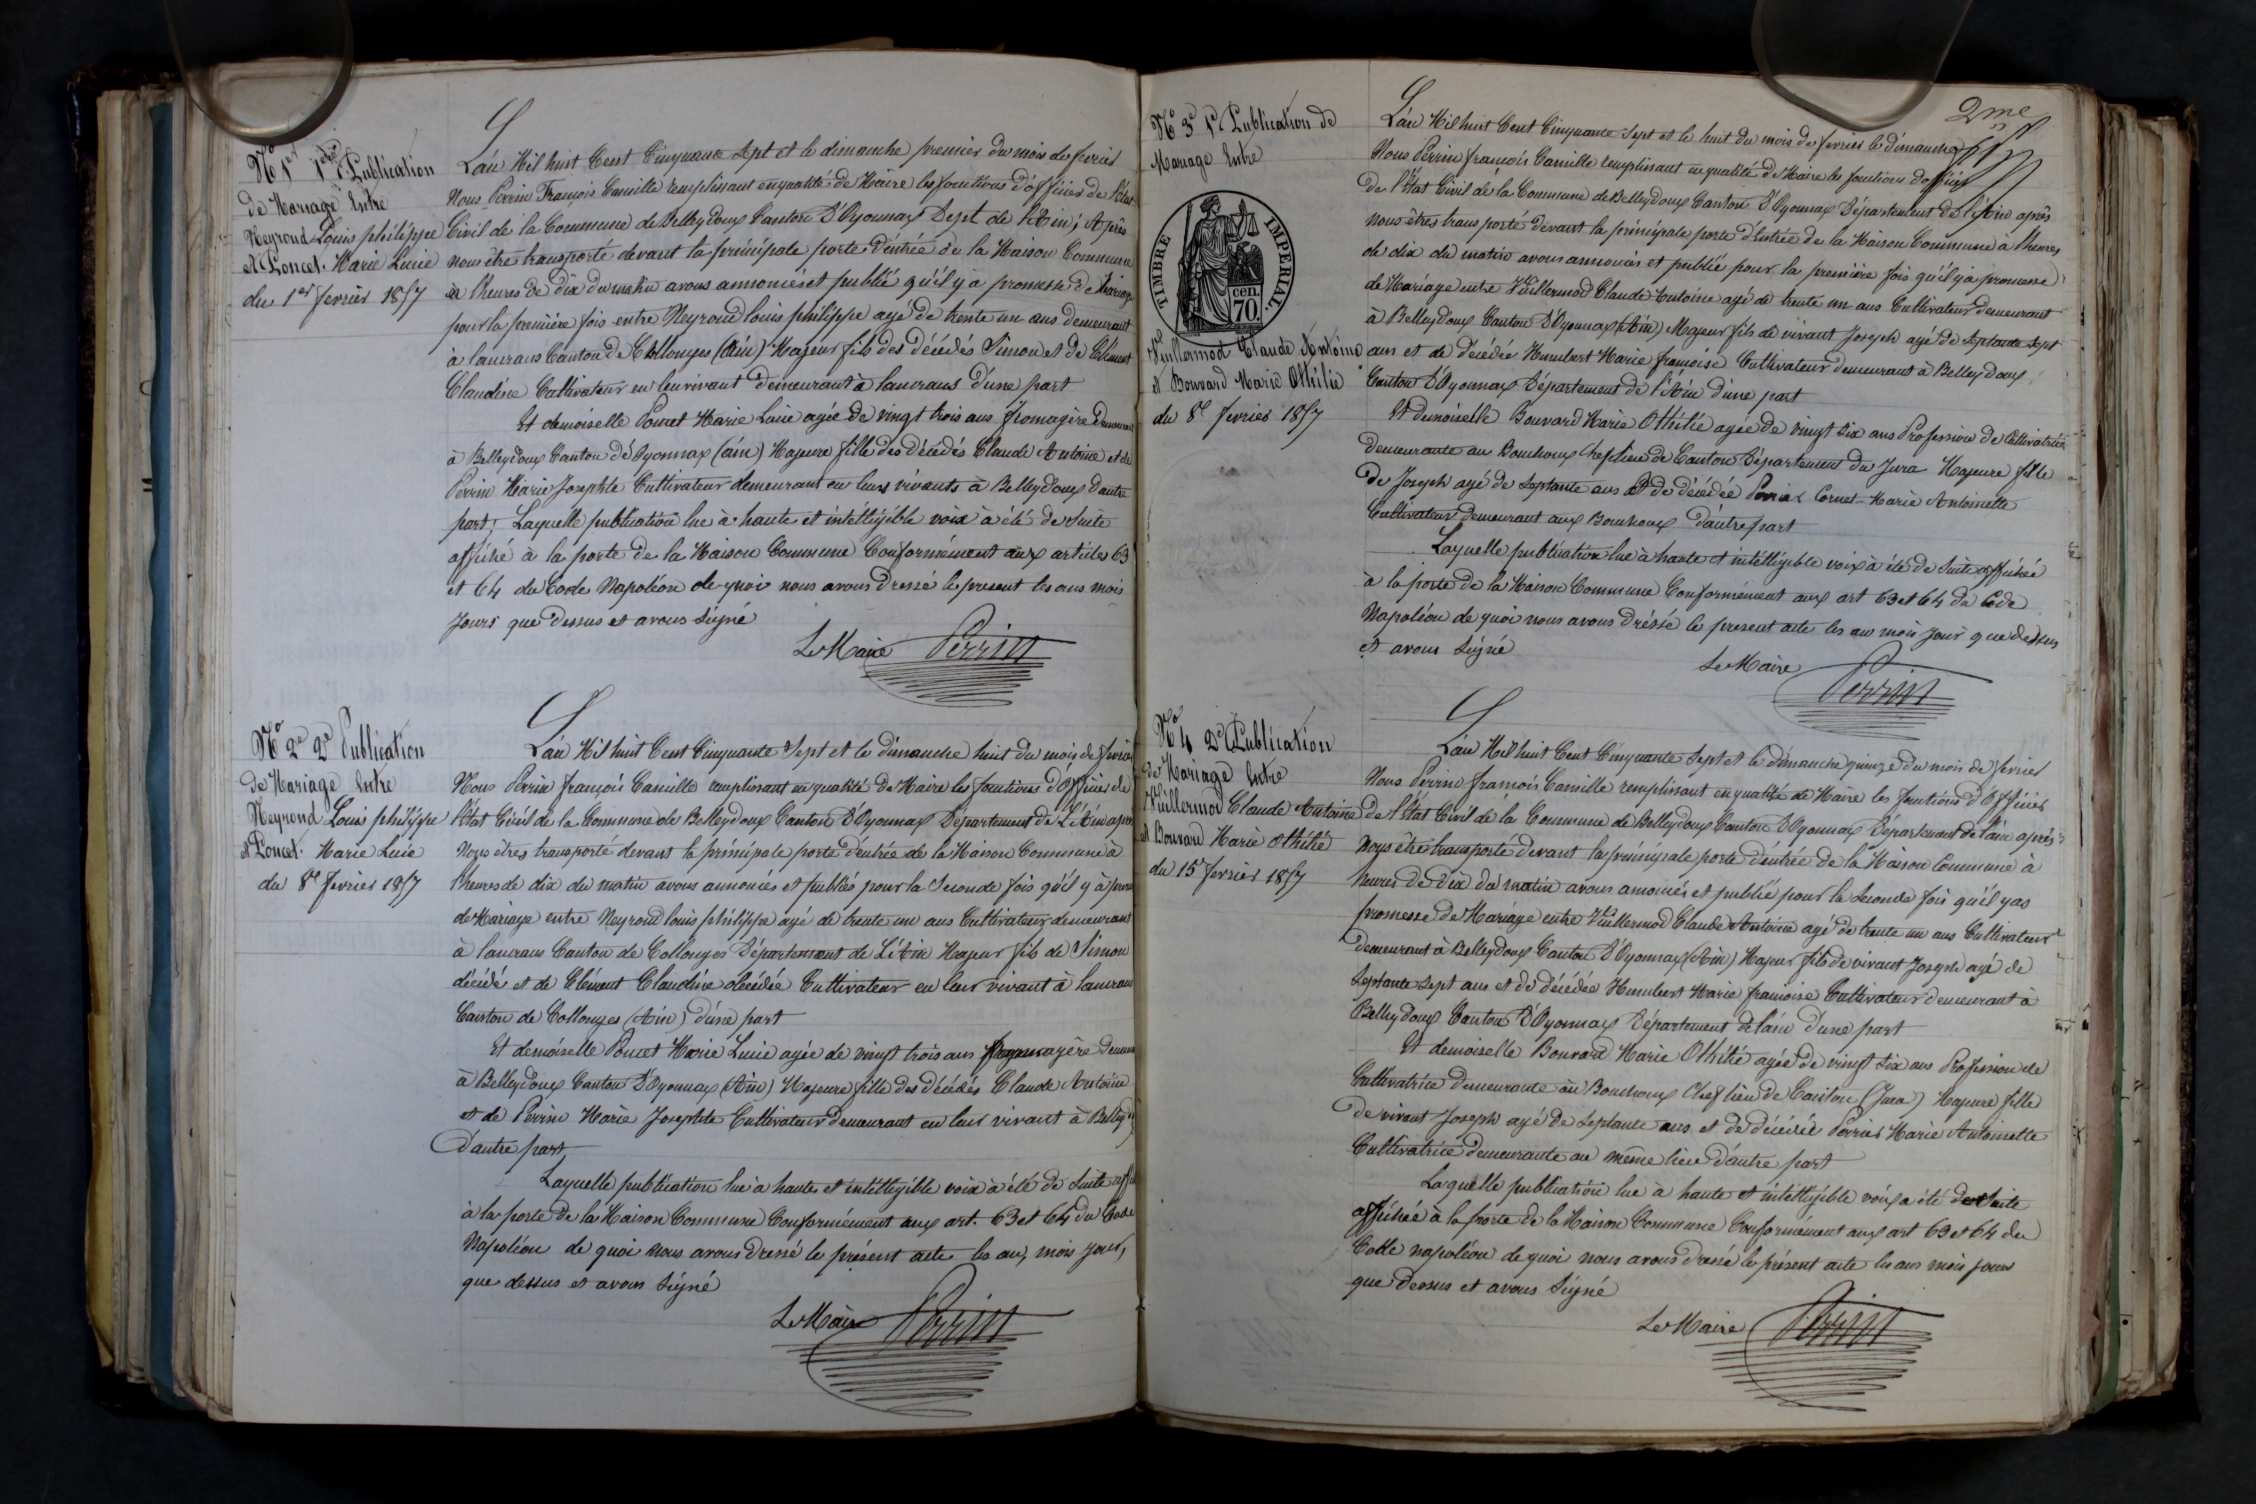 No 1er 1ere Publication
de Mariage Entre
Neyroud Louis philippe
et Poncet. Marie Lucie
du 1er fevrier 1857
L'an Mil huit Cent Cinquante Sept et le dimanche premier du mois de fevrier
Nous Perrin François Camille remplissant en qualité de Maire les fonctions d'officier de l'état
Civil de la Commune de Belleydoux Canton D'Oyonnax Dept de l'Ain; Après
nous être transporté devant la principale porte d'entrée de la Maison Commune
à l'heures de dix du matin avons annoncés et publié qu'il y a promesse de Mariage
pour la première fois entre Neyroud louis philippe agé de trente un ans demeurant
à lancrans Canton de Collonges (Ain) Majeur fils des décédés Simon et de Clément
Claudine Cultivateur en leur vivant demeurant à lancrans d'une part
Et demoiselle Poncet Marie Lucie agée de vingt trois ans fromagère demeurant
à Belleydoux Canton d'Oyonnax (ain) Majeure fille des décédés Claude Antoine et de
Perrin Marie Josephte Cultivateur demeurant en leurs vivants à Belleydoux d'autre
part; Laquelle publication lue à haute et intelligible voix à été de suite
affiché à la porte de la Maison Commune Conformément aux articles 63
et 64 du Code Napoléon de quoi nous avons dressé le present les ans mois
Jours que dessus et avons signé
Le Maire Perrin
No 2e 2e Publication
de Mariage Entre
Neyroud Louis philippe
et Poncet. Marie Lucie
du 8e fevrier 1857
L'an Mil huit Cent Cinquante Sept et le dimanche huit du mois de fevrier
Nous Perrin françois Camille remplissant en qualité de Maire les fonctions d'officier de
l'État Civil de la Commune de Belleydoux Canton D'Oyonnax Département de L'Ain après
Nous êtres transporté devant la principale porte d'entrée de la Maison Commune à
l'heures de dix du matin avons annoncés et publiés pour la Seconde fois qu'il y à promesse
de Mariage entre Neyroud louis philippe agé de trente un ans Cultivateur demeurant
à lancrans Canton de Collonges Département de L'Ain Majeur fils de Simon
décédé et de Clément Claudine décédée Cultivateur en leur vivant à lancrans
Canton de Collonges (Ain) d'une part
Et demoiselle Poncet Marie Lucie agée de vingt trois ans fromagère demeurant
à Belleydoux Canton D'Oyonnax (Ain) Majeure fille des décédés Claude Antoine
et de Perrin Marie Josephte Cultivateur demeurant en leur vivant à Belleydoux
d'autre part,
Laquelle publication lue à haute et intelligible voix à été de suite
à la porte de la Maison Commune Conformément aux art. 63 et 64 du Code
Napoléon de quoi nous avons dressé le présent acte les an, mois jour,
que dessus et avons Signé
Le Maire Perrin
2me
No 3e 1e Publication de
Mariage Entre
TIMBRE IMPERIAL.
cen.
70.
Vuillermod Claude Antoine
et Bouvard Marie Othilie
du 8e fevrier 1857
L'an Mil huit Cent Cinquante Sept et le huit du mois de fevrier le dimanche
Nous Perrin françois Camille remplissant en qualité de Maire les fonctions d'officier
de l'État Civil de la Commune de Belleydoux Canton D'Oyonnax Département de l'Ain après
nous êtres transporté devant la principale porte d'entrée de la Maison Commune à l'heures
de dix du matin avons annoncés et publié pour la première fois qu'il y a promesse
de Mariage entre Vuillermod Claude Antoine agé de trente un ans Cultivateur demeurant
à Belleydoux Canton D'Oyonnax (Ain) Majeur fils de vivant Joseph agé de Septante Sept
ans et de décédée Humbert Marie françoise Cultivateur demeurant à Belleydoux
Canton D'Oyonnax Département de l'Ain d'une part
Et demoiselle Bouvard Marie Othilie agée de vingt Six ans Profession de Cultivatrice
demeurante au Bouchoux Cheflieu de Canton Département du Jura Majeure fille
de Joseph agé de Septante ans et de décédée Perrier Cornet Marie Antoinette
Cultivateur demeurant aux Bouchoux d'autre part
Laquelle publication lue à haute et intelligible voix à été de Suite affichée
à la porte de la Maison Commune Conformément aux art 63 et 64 du Code
Napoléon de quoi nous avons dréssé le present acte les an mois jour que dessus
et avons Signé
Le Maire Perrin
No 4 2e Publication
de Mariage Entre
Vuillermod Claude Antoine
et Bouvard Marie Othilie
du 15 fevrier 1857
L'an Mil huit Cent Cinquante Sept et le dimanche quinze du mois de fevrier
Nous Perrin françois Camille remplissant en qualité de Maire les fonctions d'Officier
de l'État Civil de la Commune de Belleydoux Canton D'Oyonnax Département de l'ain après
Nous être transporté devant la principale porte d'entrée de la Maison Commune à
heures de dix du matin avons annoncés et publié pour la Seconde fois qu'il y as
promesse de Mariage entre Vuillermod Claude Antoine agé de trente un ans Cultivateur
demeurant à Belleydoux Canton D'Oyonnax (Ain) Majeur fils de vivant Joseph agé de
Septante Sept ans et de décédée Humbert Marie françoise Cultivateur demeurant à
Belleydoux Canton D'Oyonnax Département de l'ain d'une part
Et demoiselle Bouvard Marie Othilie agée de vingt Six ans Profession de
Cultivatrice demeurante au Bouchoux Chef lieu de Canton (Jura) Majeure fille
de vivant Joseph agé de Septante ans et de décédée Perrier Marie Antoinette
Cultivatrice demeurante au même lieu d'autre part
Laquelle publication lue à haute et intelligible voix a été de Suite
affichée à la porte de la Maison Commune Conformément aux art 63 et 64 du
Code napoléon de quoi nous avons dressé le présent acte les ans mois jours
que dessus et avons Signé
Le Maire Perrin